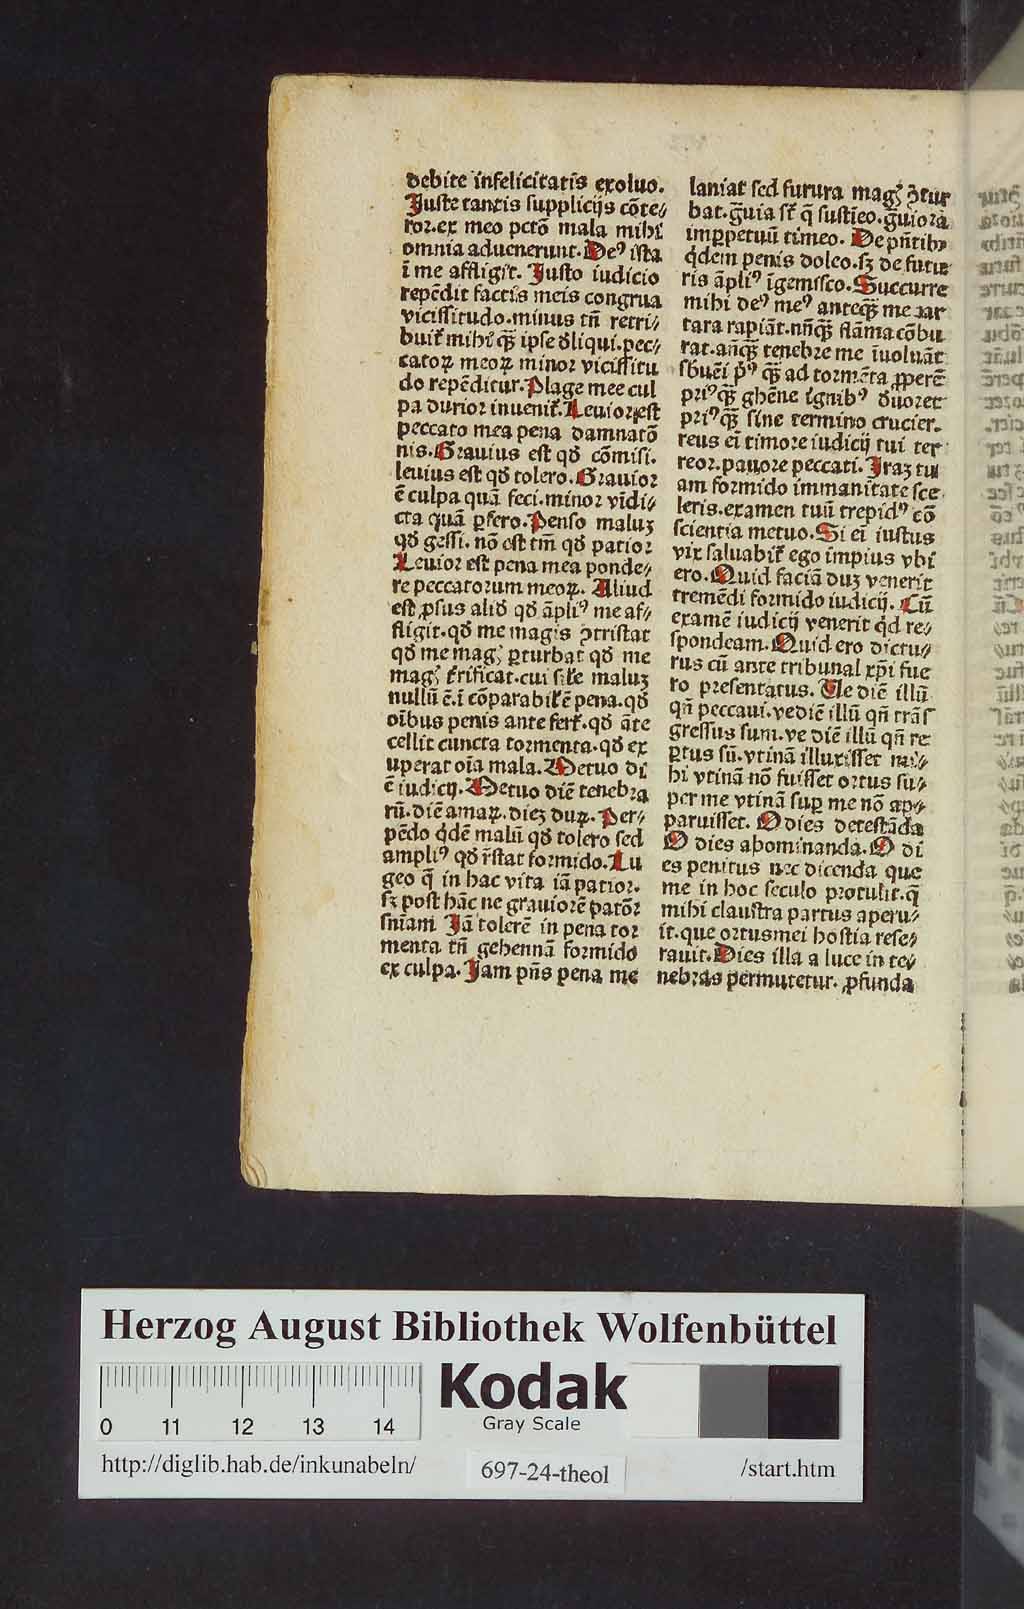 debite infelicitatis exoluo.
Juste tantis supplicijs cōte⸗
ror.ex meo pctō mala mihi
omnia aduenerunt.Deꝰ ista
ī me affligit. Justo iudicio
repēdit factis meis congrua
vicissitudo.minus tn̄ retri⸗
buit᷑ mihi qꝫ̄ ipse deliqui.pec⸗
catoꝝ meoꝝ minor vicissitu
do repēditur.Plage mee cul
pa durior inuenit᷑.Leuior est
peccato mea pena damnatō
nis.Grauius est qđ cōmisi.
leuius est qđ tolero.Grauior
ē culpa quā feci.minor vīdi⸗
cta quā ꝑfero.Penso maluꝫ
qđ gessi.nō est tm̄ qđ patior
Leuior est pena mea ponde⸗
re peccatorum meoꝝ. Aliud
est ꝓsus aliđ qđ āpliꝰ me af⸗
fligit.qđ me magis ꝯtristat
qđ me magꝭ ꝑturbat qđ me
magꝭ t᷑rificat.cui sil̄e maluꝫ
nullū ē.ī cōparabil̄e pena.qđ
oībus penis ante fert᷑.qđ āte
cellit cuncta tormenta.qđ ex
uperat oīa mala.Metuo di
ē iudicij.Metuo diē tenebra
rū.diē amaꝝ.dieꝫ duꝝ.Per⸗
pēdo qdē malū qđ tolero sed
ampliꝰ qđ r̄stat formido.Lu
geo q̄ in hac vita iā patior.
sꝫ post hāc ne grauiorē patōr
sn̄iam Jā tolerē in pena tor
menta tn̄ gehennā formido
ex culpa.Jam pn̄s pena me
laniat sed futura magꝭ ꝯtur
bat.ḡuia st̄ q̄ sustīeo.ḡuiora
imꝑpetuū timeo.De pn̄tibꝫ
qdem penis doleo.sꝫ de futu
ris āpliꝰ īgemisco.Succurre
mihi deꝰ meꝰ anteqꝫ̄ me tar
tara rapiāt.nn̄qꝫ̄ flāma cōbu
rat.an̄qꝫ̄ tenebre me īuoluāt
sbuēi pꝰ qꝫ̄ ad tormēta ꝓperē
priꝰqꝫ̄ ghēne ignibꝰ deuoret
priꝰqꝫ̄ sine termino crucier.
reus ei timore iudicij tui ter
reor.pauore peccati.Iraꝫ tu
am formido immanitate sce
leris.examen tuū trepidꝰ cō
scientia metuo.Si ei iustus
vix saluabit᷑ ego impius vbi
ero.Quid faciā duꝫ venerit
tremēdi formido iudicij. Cū
examē iudicij venerit qd re⸗
spondeam.Quid ero dictu⸗
rus cū ante tribunal xp̄i fue
ro presentatus. Ue diē illū
qn̄ peccaui.ve diē illū qn̄ trās
gressus sum.ve diē illū qn̄ re
ꝑtus sū.vtinā illuxisset mi⸗
hi vtinā nō fuisset ortus su⸗
per me vtinā suꝑ me nō ap⸗
paruisset. O dies detestāda
O dies abominanda.O di
es penitus nec dicenda que
me in hoc seculo protulit.q̄
mihi claustra partus aperu⸗
it.que ortus mei hostia rese⸗
rauit.Dies illa a luce in te⸗
nebras permutetur. ꝓfunda
Herzog August Bibliothek Wolfenbüttel
0 11 12 13 14
Kodak
Gray Scale
http://diglib.hab.de/inkunabeln/
697-24-theol
/start.htm